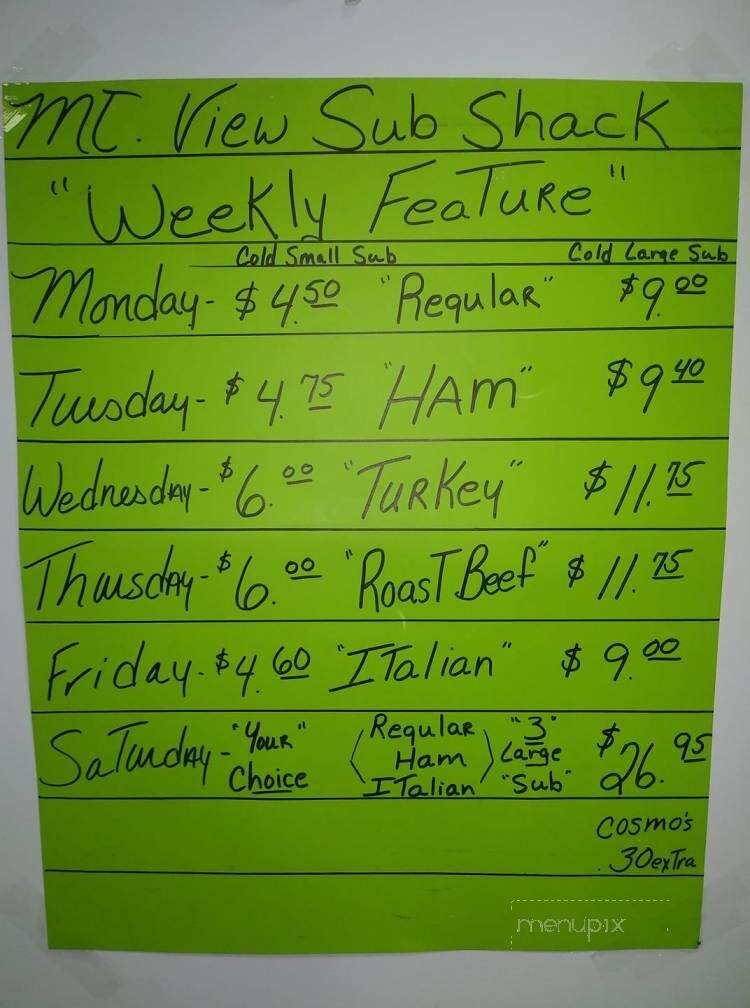 Mt. View Sub Shack
"Weekly Feature"
Cold Small Sub Cold Large Sub
Monday- $4.50 "Regular" $9.00
Tuesday- $4.75 "HAM" $9.40
Wednesday- $6.00 "Turkey" $11.75
Thursday- $6.00 "Roast Beef" $11.75
Friday- $4.60 "Italian" $9.00
Saturday- "Your" Choice < Regular Ham Italian > "3" Large "Sub" $26.95
Cosmo's
.30 extra
menupix